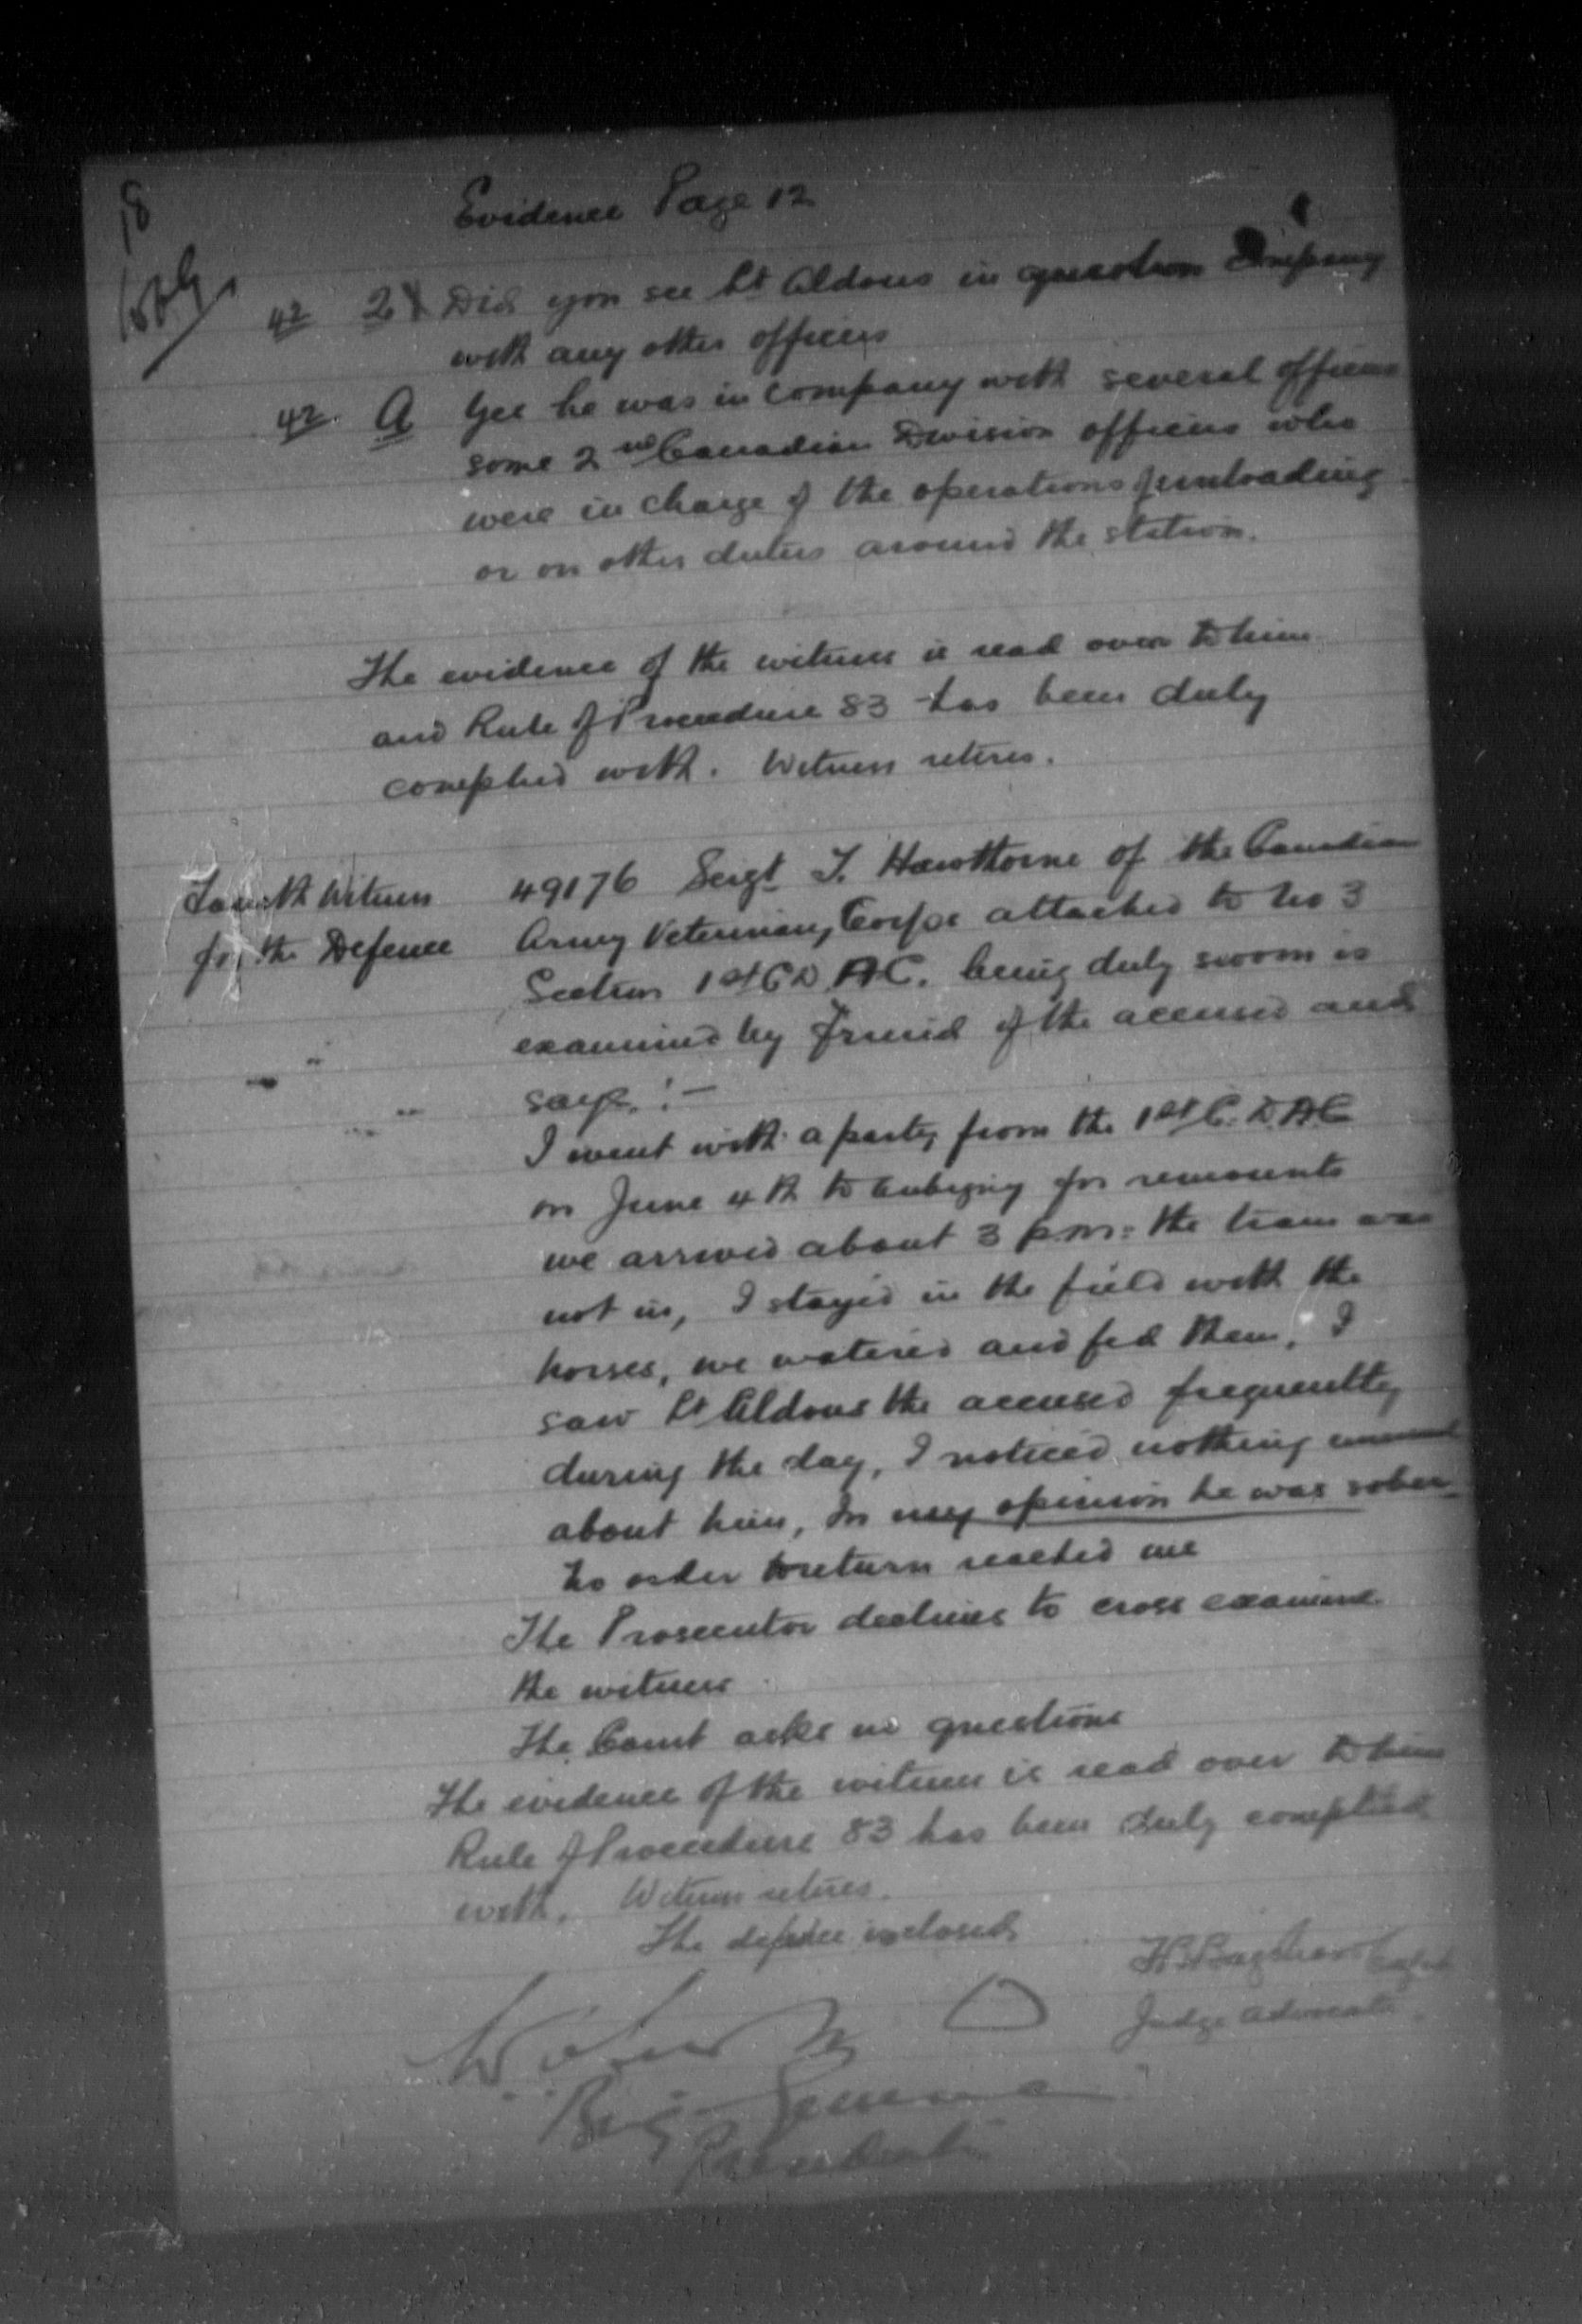 18
Evidence Page 12
42 Q Did you see Lt Aldous in question Company
with any other officers
42. A Yes he was in company with several officers
some 2nd Canadian Division officers who
were in charge of the operations of unloading
or on other duties around the station.
The evidence of the witness is read over to him
and Rule of Procedure 83 has been duly
complied with. Witness retires.
Fourth Witness
for the Defence
49176 Sergt T. Hawthorne of the Canadian
Army Veterinary Corps attached to No 3
Section 1st C D. A C. being duly sworn is
examined by friend of the accused and
says :-
I went with a party from the 1st C. D. A C
on June 4th to for remounts
we arrived about 3 p.m. the train was
not in, I stayed in the field with the
horses, we watered and fed them, I
saw Lt Aldous the accused frequently
during the day, I noticed nothing unusual
about him, In my opinion he was sober
No order to return reached me
The Prosecutor declines to cross examine
the witness
The Court asks no questions
The evidence of the witness is read over to him
Rule of Procedure 83 has been duly complied
with. Witness retires.
The defence is closed
Capt
Judge Advocate.
Brig-General
President